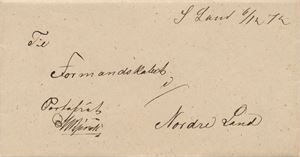 S Land 6/12 72
Til
Formandskabet
i
Portofrit
Nordre Land